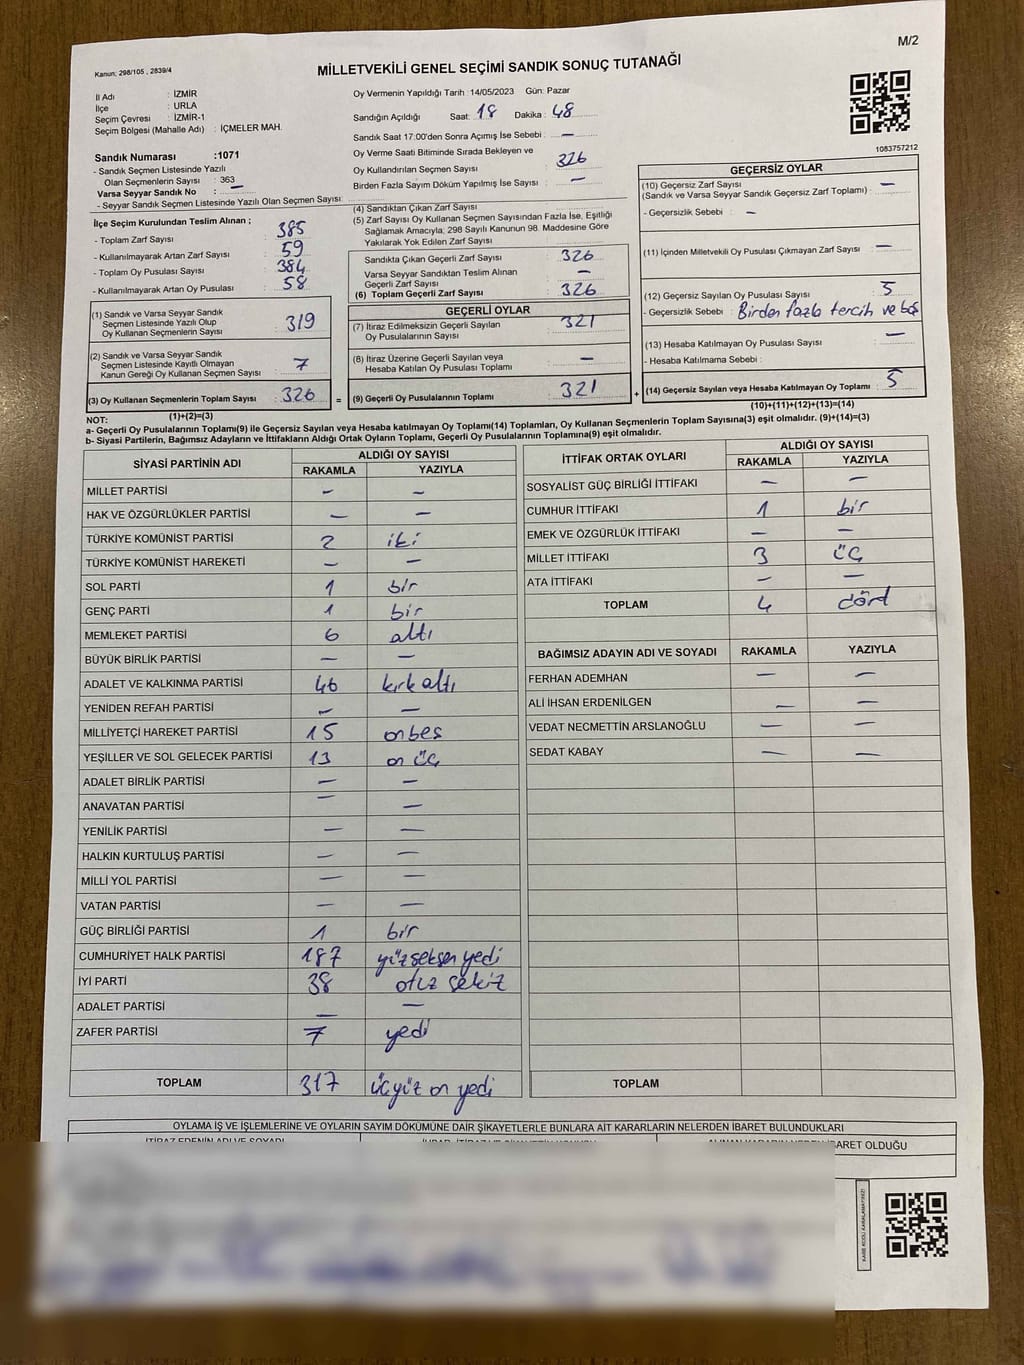 M/2
Kanun; 298/105 , 2839/4
MİLLETVEKİLİ GENEL SEÇİMİ SANDIK SONUÇ TUTANAĞI
İl Adı : İZMİR
İlçe : URLA
Seçim Çevresi : İZMİR-1
Seçim Bölgesi (Mahalle Adı) : İÇMELER MAH.
Oy Vermenin Yapıldığı Tarih :14/05/2023 Gün: Pazar
Sandığın Açıldığı Saat: 18 Dakika : 48
Sandık Saat 17:00'den Sonra Açımış İse Sebebi : —
Oy Verme Saati Bitiminde Sırada Bekleyen ve
Oy Kullandırılan Seçmen Sayısı : 326
Birden Fazla Sayım Döküm Yapılmış İse Sayısı : —
1083757212
Sandık Numarası :1071
- Sandık Seçmen Listesinde Yazılı
Olan Seçmenlerin Sayısı : 363
Varsa Seyyar Sandık No : —
- Seyyar Sandık Seçmen Listesinde Yazılı Olan Seçmen Sayısı:
İlçe Seçim Kurulundan Teslim Alınan ;
- Toplam Zarf Sayısı : 385
- Kullanılmayarak Artan Zarf Sayısı : 59
- Toplam Oy Pusulası Sayısı : 384
- Kullanılmayarak Artan Oy Pusulası : 58
(1) Sandık ve Varsa Seyyar Sandık
Seçmen Listesinde Yazılı Olup
Oy Kullanan Seçmenlerin Sayısı : 319
(2) Sandık ve Varsa Seyyar Sandık
Seçmen Listesinde Kayıtlı Olmayan
Kanun Gereği Oy Kullanan Seçmen Sayısı : 7
(3) Oy Kullanan Seçmenlerin Toplam Sayısı : 326 =
(1)+(2)=(3)
(4) Sandıktan Çıkan Zarf Sayısı :
(5) Zarf Sayısı Oy Kullanan Seçmen Sayısından Fazla İse, Eşitliği
Sağlamak Amacıyla; 298 Sayılı Kanunun 98. Maddesine Göre
Yakılarak Yok Edilen Zarf Sayısı :
Sandıkta Çıkan Geçerli Zarf Sayısı : 326
Varsa Seyyar Sandıktan Teslim Alınan
Geçerli Zarf Sayısı : —
(6) Toplam Geçerli Zarf Sayısı : 326
GEÇERLİ OYLAR
(7) İtiraz Edilmeksizin Geçerli Sayılan
Oy Pusulalarının Sayısı : 321
(8) İtiraz Üzerine Geçerli Sayılan veya
Hesaba Katılan Oy Pusulası Toplamı : —
(9) Geçerli Oy Pusulalarının Toplamı : 321 +
GEÇERSİZ OYLAR
(10) Geçersiz Zarf Sayısı : —
(Sandık ve Varsa Seyyar Sandık Geçersiz Zarf Toplamı)
- Geçersizlik Sebebi : —
(11) İçinden Milletvekili Oy Pusulası Çıkmayan Zarf Sayısı : —
(12) Geçersiz Sayılan Oy Pusulası Sayısı : 5
- Geçersizlik Sebebi : Birden fazla tercih ve boş
(13) Hesaba Katılmayan Oy Pusulası Sayısı : —
- Hesaba Katılmama Sebebi :
(14) Geçersiz Sayılan veya Hesaba Katılmayan Oy Toplamı : 5
(10)+(11)+(12)+(13)=(14)
NOT:
a- Geçerli Oy Pusulalarının Toplamı(9) ile Geçersiz Sayılan veya Hesaba katılmayan Oy Toplamı(14) Toplamları, Oy Kullanan Seçmenlerin Toplam Sayısına(3) eşit olmalıdır. (9)+(14)=(3)
b- Siyasi Partilerin, Bağımsız Adayların ve İttifakların Aldığı Ortak Oyların Toplamı, Geçerli Oy Pusulalarının Toplamına(9) eşit olmalıdır.
SİYASİ PARTİNİN ADI ALDIĞI OY SAYISI
RAKAMLA YAZIYLA
MİLLET PARTİSİ — —
HAK VE ÖZGÜRLÜKLER PARTİSİ — —
TÜRKİYE KOMÜNİST PARTİSİ 2 iki
TÜRKİYE KOMÜNİST HAREKETİ — —
SOL PARTİ 1 bir
GENÇ PARTİ 1 bir
MEMLEKET PARTİSİ 6 altı
BÜYÜK BİRLİK PARTİSİ — —
ADALET VE KALKINMA PARTİSİ 46 kırk altı
YENİDEN REFAH PARTİSİ — —
MİLLİYETÇİ HAREKET PARTİSİ 15 onbeş
YEŞİLLER VE SOL GELECEK PARTİSİ 13 on üç
ADALET BİRLİK PARTİSİ — —
ANAVATAN PARTİSİ — —
YENİLİK PARTİSİ — —
HALKIN KURTULUŞ PARTİSİ — —
MİLLİ YOL PARTİSİ — —
VATAN PARTİSİ — —
GÜÇ BİRLİĞİ PARTİSİ 1 bir
CUMHURİYET HALK PARTİSİ 187 yüz seksen yedi
İYİ PARTİ 38 otuz sekiz
ADALET PARTİSİ — —
ZAFER PARTİSİ 7 yedi
TOPLAM 317 üçyüz on yedi
İTTİFAK ORTAK OYLARI ALDIĞI OY SAYISI
RAKAMLA YAZIYLA
SOSYALİST GÜÇ BİRLİĞİ İTTİFAKI — —
CUMHUR İTTİFAKI 1 bir
EMEK VE ÖZGÜRLÜK İTTİFAKI — —
MİLLET İTTİFAKI 3 üç
ATA İTTİFAKI — —
TOPLAM 4 dört
BAĞIMSIZ ADAYIN ADI VE SOYADI RAKAMLA YAZIYLA
FERHAN ADEMHAN — —
ALİ İHSAN ERDENİLGEN — —
VEDAT NECMETTİN ARSLANOĞLU — —
SEDAT KABAY — —
TOPLAM
OYLAMA İŞ VE İŞLEMLERİNE VE OYLARIN SAYIM DÖKÜMÜNE DAİR ŞİKAYETLERLE BUNLARA AİT KARARLARIN NELERDEN İBARET BULUNDUKLARI
İTİRAZ EDENİN ADI VE SOYADI
İBARET OLDUĞU
KARE KODU KARALAMAYINIZ!